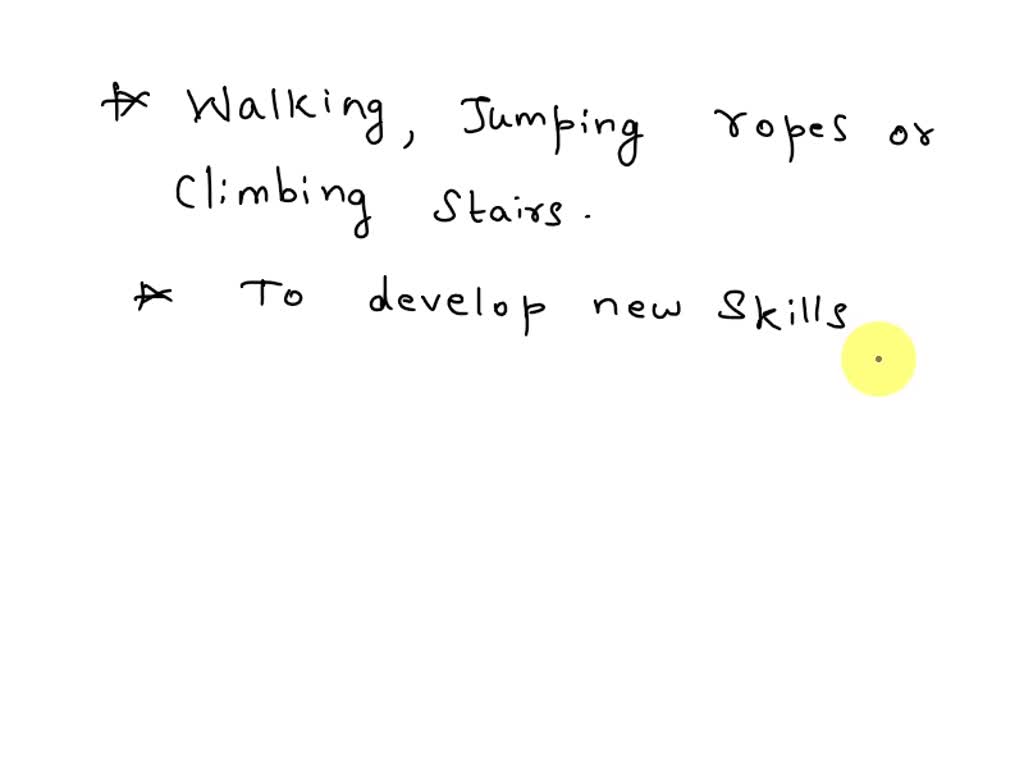 * Walking, Jumping ropes or
Climbing Stairs.
* To develop new Skills